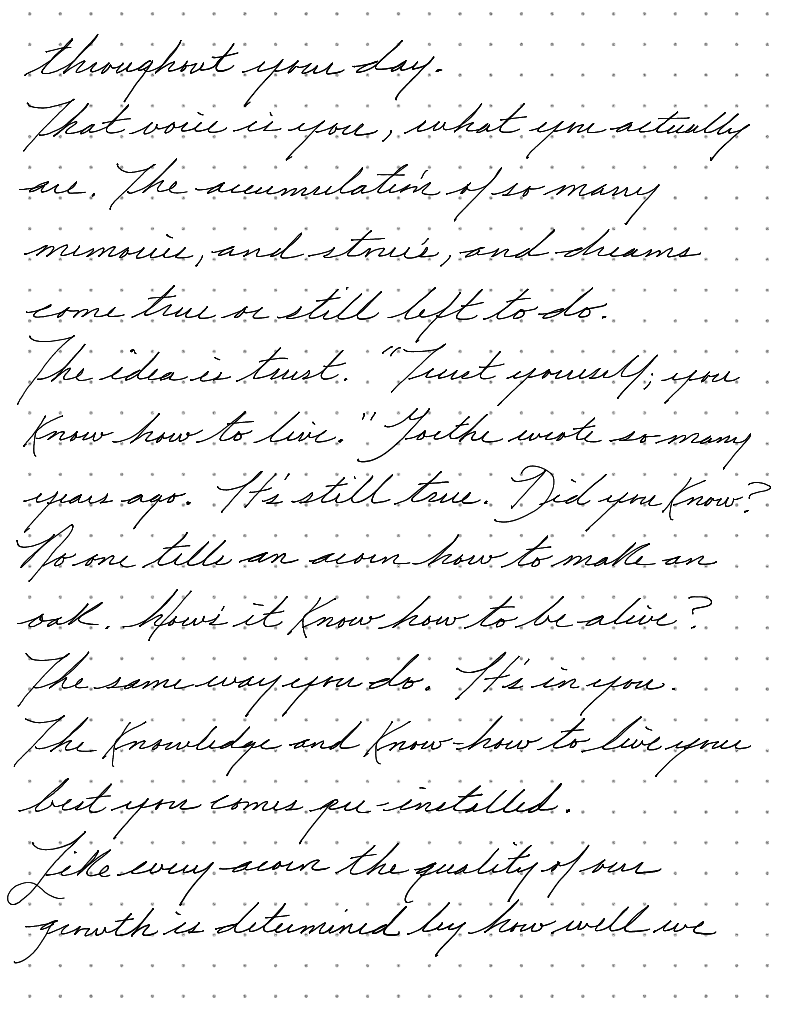 throughout your day.
That voice is you, what you actually
are. The accumulation of so many
memories, and stories, and dreams
come true or still left to do.
The idea is trust. "Trust yourself; you
Know how to live." Goethe wrote so many
years ago. It's still true. Did you Know?
No one tells an acorn how to make an
oak. How's it Know how to be alive?
The same way you do. It's in you.
The Knowledge and Know-how to live your
best you comes pre-installed.
Like every acorn the quality of our
growth is determined by how well we